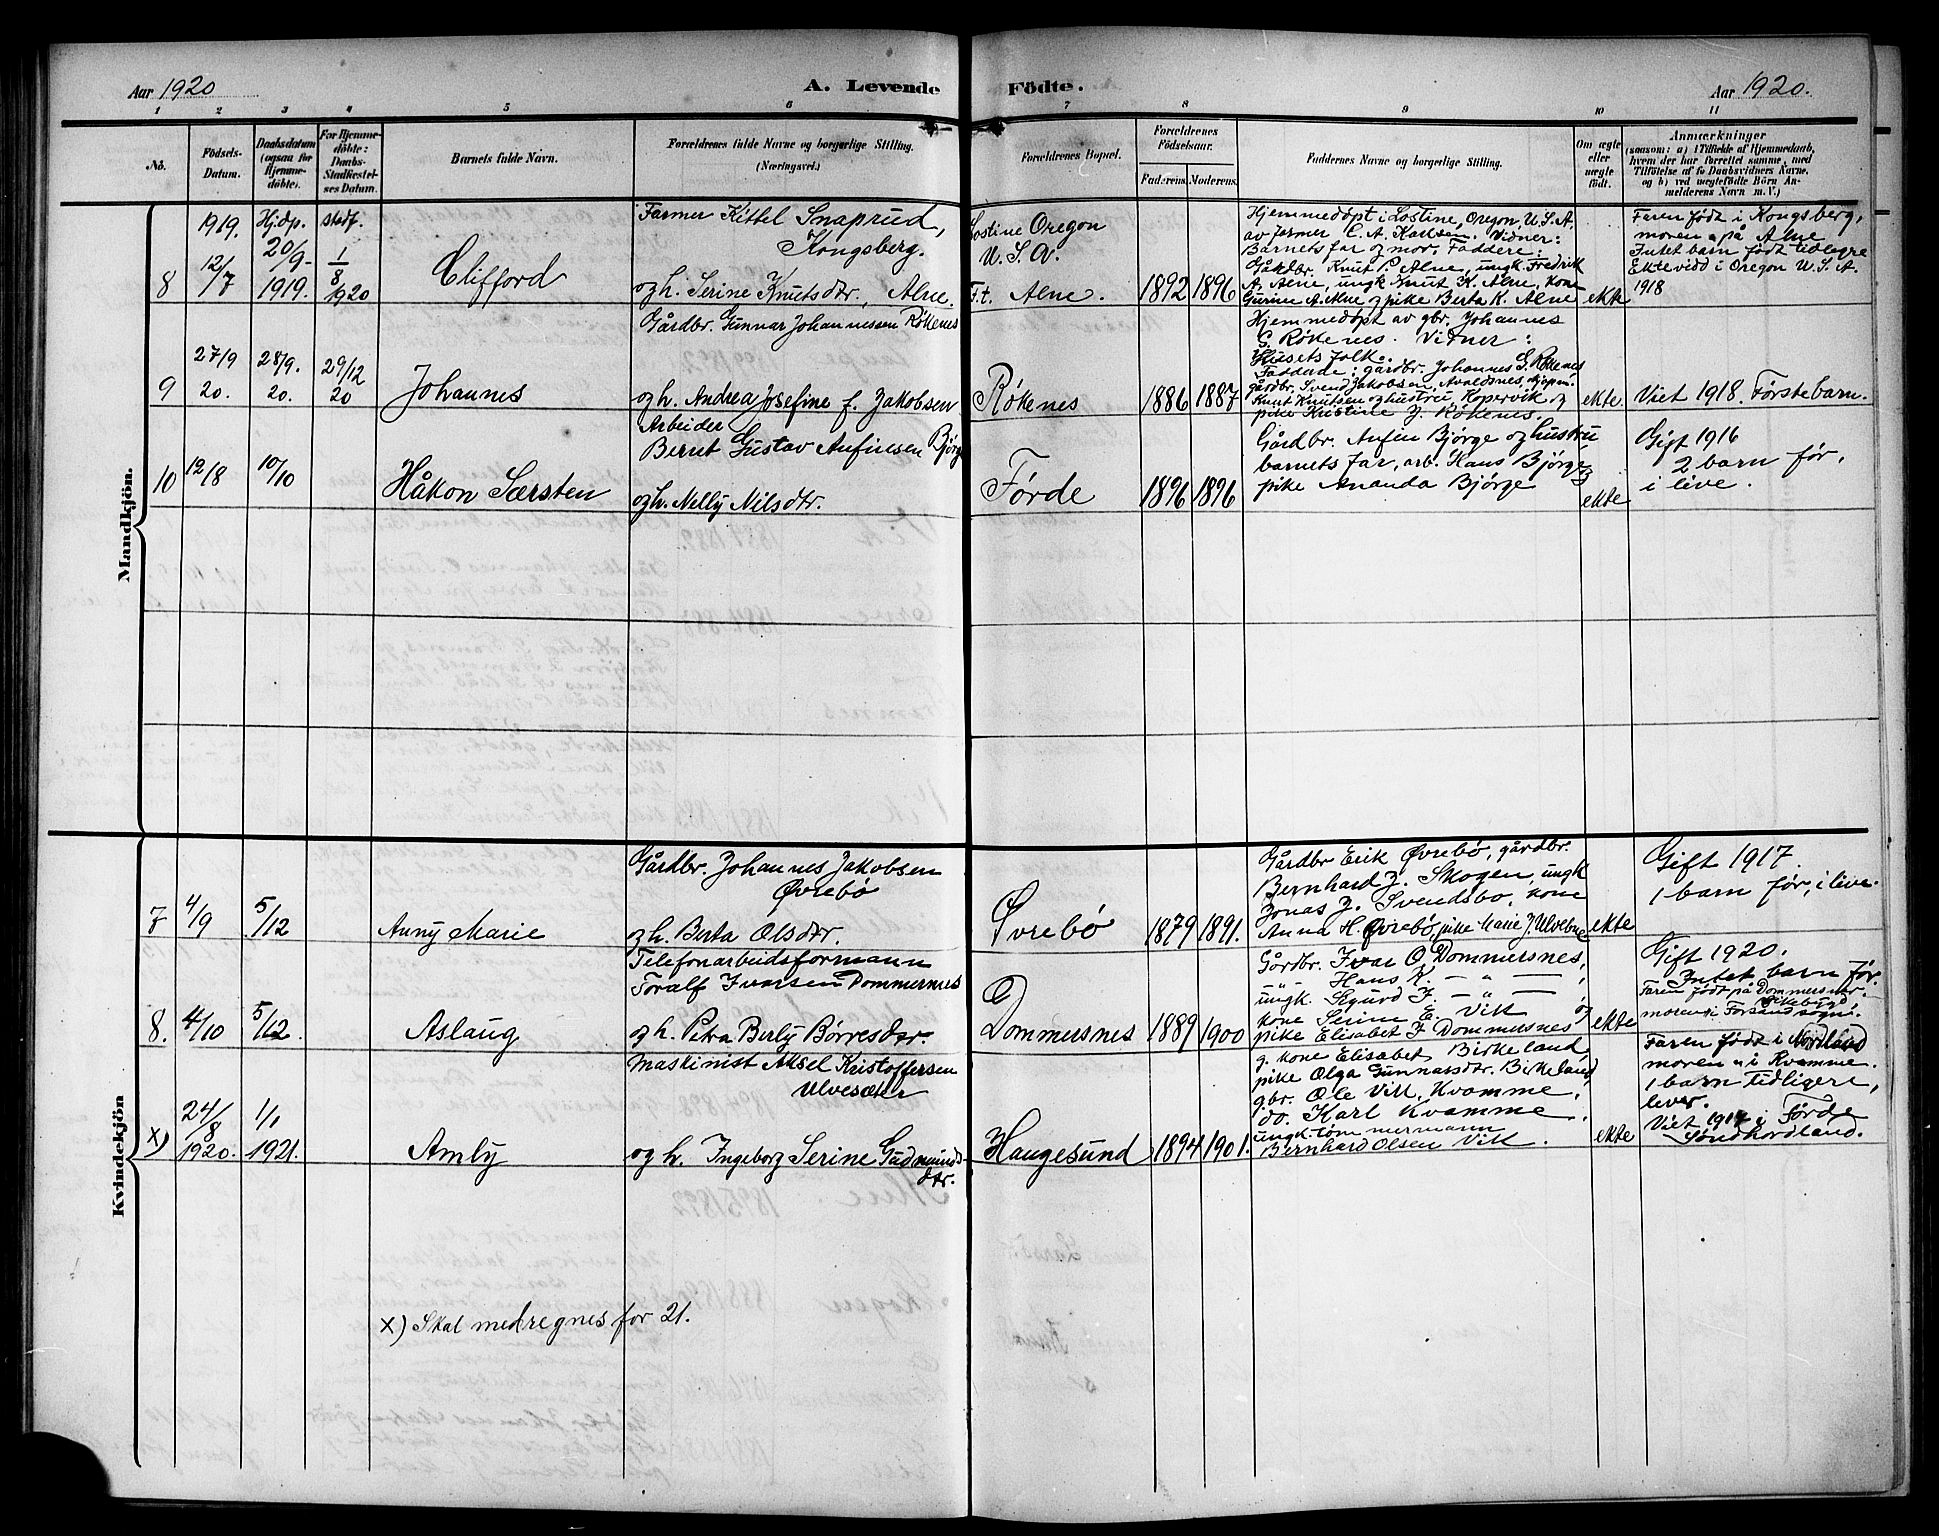 Aar 1920
A. Levende
Födte.
Aar 1920.
1 2 3 4 5 6 7 8 9 10 11
No.
Födsels-
Datum.
Daabsdatum
(ogsaa för
Hjemme-
döbte).
For Hjemme-
döbte:
Daabs-
Stadfæstel-
ses Datum.
Barnets fulde Navn.
Forældrenes fulde Navne og borgerlige Stilling.
(Næringsvei.)
Forældrenes Bopæl.
Forældrenes
Födselsaar.
Faderens.
Moderens.
Faddernes Navne og borgerlige Stilling.
Om ægte
eller
uægte
födt.
Anmærkninger
(saasom: a) i Tilfælde af Hjemmedaab,
hvem der har forrettet samme, med
Tilföielse af to Daabsvidners Navne,
og b) ved uægtefödte Börn An-
melderens Navn m. V.)
Mandkjön.
8
1919.
12/7
Hjdp.
20/9-
1919.
Stadf.
1/8
1920
Clifford
Farmer Kittel Snaprud,
Kongsberg.
og h. Serine Knutsdtr., Alne.
Lostine Oregon
U.S.A.
F.t. Alne.
1892
1896
Hjemmedöpt i Lostine, Oregon, U.S.A.
av farmer C. A. Karlsen. Vidner:
Barnets far og mor. Faddere:
Gårdbr. Knut P. Alne, ungk. Fredrik
A. Alne, ungk. Knut K. Alne, kone
Gurine A. Alne og pike Berta K. Alne
ekte
Faren født i Kongsberg,
moren „ på Alne
Intet barn født tidlegre
Ektevidd i Oregon U.S.A.
1918
9
27/9
20.
28/9.
20.
29/12
20
Johannes
Gårdbr. Gunnar Johannessen Røkenes
og h. Andrea Josefine f. Jakobsen
Røkenes
1886
1887
Hjemmedöpt av gbr. Johannes
G. Røkenes. Vidner:
Husets folk.
Faddere: gårdbr. Johannes G. Røkenes
gårdbr. Svend Jakobsen, Avaldsnes,
Knut Knutsen og hustru, Kopervik og
pike Kristine J. Røkenes.
ekte.
Viet 1918. Førstebarn.
10
12/8
10/10
Håkon Særsten
Arbeider
Bernt Gustav Anfinsen Bjørge
og h. Nelly Nilsdtr.
Førde
1896
1896
Gårdbr. Anfen Bjørge og hustru
barnets far, arb. Hans Bjørge og
pike Ananda Bjørge
ekte
Gift 1916
2 barn før,
i live.
Kvindekjön
7
4/9
5/12
Anny Marie
Gårdbr. Johannes Jakobsen
Øvrebö
og h. Berta Olsdtr.
Øvrebö
1879
1891.
Gårdbr Erik Øvrebö, gårdbr.
Bernhard J. Skogen, ungk
Jonas J. Svendsbo, kone
Anna H. Øvrebö, pike Marie J. Ulvebne
ekte
Gift 1917.
1 barn før, i live.
8.
4/10
5/12
Aslaug
Telefonarbeidsformann
Toralf Ivarsen Dommersnes
og h. Petra Berly Børresdtr.
Dommersnes
1889
1900
Gårdbr. Ivar O. Dommersnes,
-"- Hans K. — " —
ungk. Sigurd I. — " —
kone Serine E. Vik og
pike Elisabet I. Dommersnes
ekte
Gift 1920.
Intet barn før.
Faren født på Dommersnes.
moren i Forsand sogn.
x)
24/8
1920.
1/1
1921.
Amly
Maskinist Aksel Kristoffersen
Ulvesæter
og h. Ingeborg Serine Gudmunds-
dtr.
Haugesund
1894
1901.
g. kone Elisabet Birkeland,
pike Olga Gunnarsdtr. Birkeland,
gbr. Ole Vik, Kvamme,
do. Karl Kvamme,
ungk. tömmermann
Bernhard Olsen Vik.
ekte
Faren født i Nordland
moren „ i Kvamme.
1 barn tidligere,
lever.
Viet 1917 i Førde
Söndhordland.
x) Skal medregnes for 21.